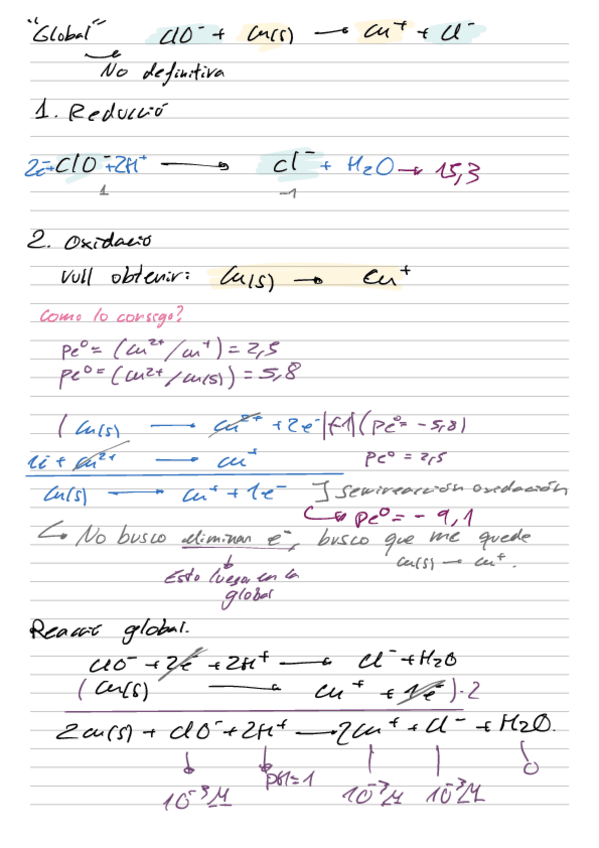 "Global" ClO⁻ + Cu(s) → Cu⁺ + Cl⁻
↳ No definitiva
1. Reducció
2e⁻+ClO⁻+2H⁺ → Cl⁻ + H₂O → 15,3
1 -1
2. Oxidació
Vull obtenir: Cu(s) → Cu⁺
Como lo consigo?
pe⁰ = (Cu²⁺/Cu⁺) = 2,5
pe⁰ = (Cu²⁺/Cu(s)) = 5,8
(Cu(s) → Cu²⁺ + 2e⁻)(-1) (pe⁰ = -5,8)
1e⁻ + Cu²⁺ → Cu⁺ pe⁰ = 2,5
Cu(s) → Cu⁺ + 1e⁻ ] semireacción oxidación
↳ pe⁰ = - 9,1
↳ No busco eliminar e⁻, busco que me quede
Cu(s) → Cu⁺.
Esto luego en la
global
Reacció global.
ClO⁻ + 2e⁻ + 2H⁺ → Cl⁻ + H₂O
(Cu(s) → Cu⁺ + 1e⁻)·2
2Cu(s) + ClO⁻ + 2H⁺ → 2Cu⁺ + Cl⁻ + H₂O.
10⁻³M pH=1 10⁻³M 10⁻³M